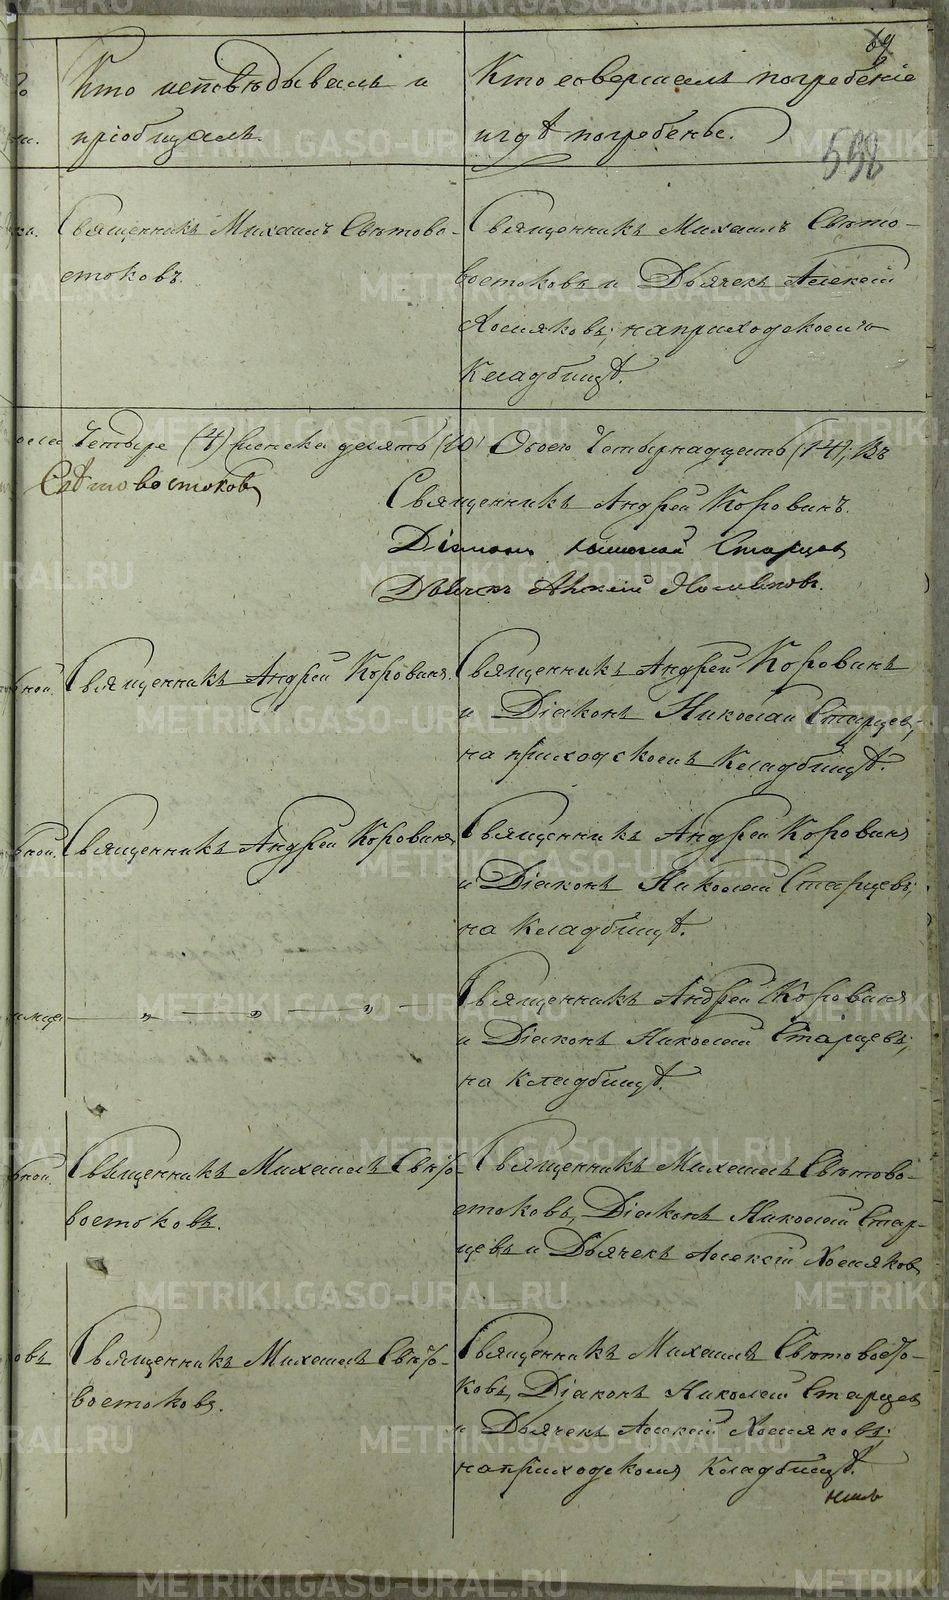 69
Кто исповѣдывалъ и
пріобщалъ.
Кто совершалъ погребеніе
и гдѣ погребены.
598
Священникъ Михаилъ Свѣтово-
стоковъ.
Священникъ Михаилъ Свѣто-
востоковъ и Дьячекъ Алексій
Хомяковъ; на приходскомъ
Кладбищѣ.
Четыре (4) женска десять (10) Обоего Четырнадцать (14); Въ
Свѣтовостоковъ
Священникъ Андрей Коровинъ.
Діаконъ Николай Старцевъ
Дьячекъ Алексій Хомяковъ.
бной. Священникъ Андрей Коровинъ.
Священникъ Андрей Коровинъ
и Діаконъ Николай Старцевъ;
на приходскомъ Кладбищѣ.
бной. Священникъ Андрей Коровинъ
Священникъ Андрей Коровинъ
и Діаконъ Николай Старцевъ;
на Кладбищѣ.
— „ — „ — „ —
Священникъ Андрей Коровинъ
и Діаконъ Николай Старцевъ;
на Кладбищѣ.
бной. Священникъ Михаилъ Свѣто-
востоковъ.
Священникъ Михаилъ Свѣтово-
стоковъ, Діаконъ Николай Стар-
цевъ и Дьячекъ Алексій Хомяковъ
овъ Священникъ Михаилъ Свѣто-
востоковъ.
Священникъ Михаилъ Свѣтовосто-
ковъ, Діаконъ Николай Старцевъ
и Дьячекъ Алексій Хомяковъ;
на приходскомъ Кладбищѣ.
METRIKI.GASO-URAL.RU